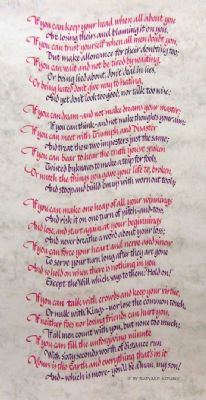 If you can keep your head when all about you
Are losing theirs and blaming it on you,
If you can trust yourself when all men doubt you,
But make allowance for their doubting too;
If you can wait and not be tired by waiting,
Or being lied about, don't deal in lies,
Or being hated don't give way to hating,
And yet don't look too good, nor talk too wise:
If you can dream - and not make dreams your master;
If you can think - and not make thoughts your aim;
If you can meet with Triumph and Disaster
And treat those two imposters just the same;
If you can bear to hear the truth you've spoken
Twisted by knaves to make a trap for fools,
Or watch the things you gave your life to, broken,
And stoop and build 'em up with worn out tools;
If you can make one heap of all your winnings
And risk it on one turn of pitch-and-toss,
And lose, and start again at your beginnings
And never breathe a word about your loss;
If you can force your heart and nerve and sinew
To serve your turn long after they are gone
And so hold on when there is nothing in you
Except the Will which says to them: 'Hold on!'
If you can talk with crowds and keep your virtue,
Or walk with Kings - nor lose the common touch,
If neither foes nor loving friends can hurt you,
If all men count with you, but none too much;
If you can fill the unforgiving minute
With sixty seconds worth of distance run,
Yours is the Earth and everything that's in it
And - which is more - you'll be a Man, my son!
IF BY RUDYARD KIPLING